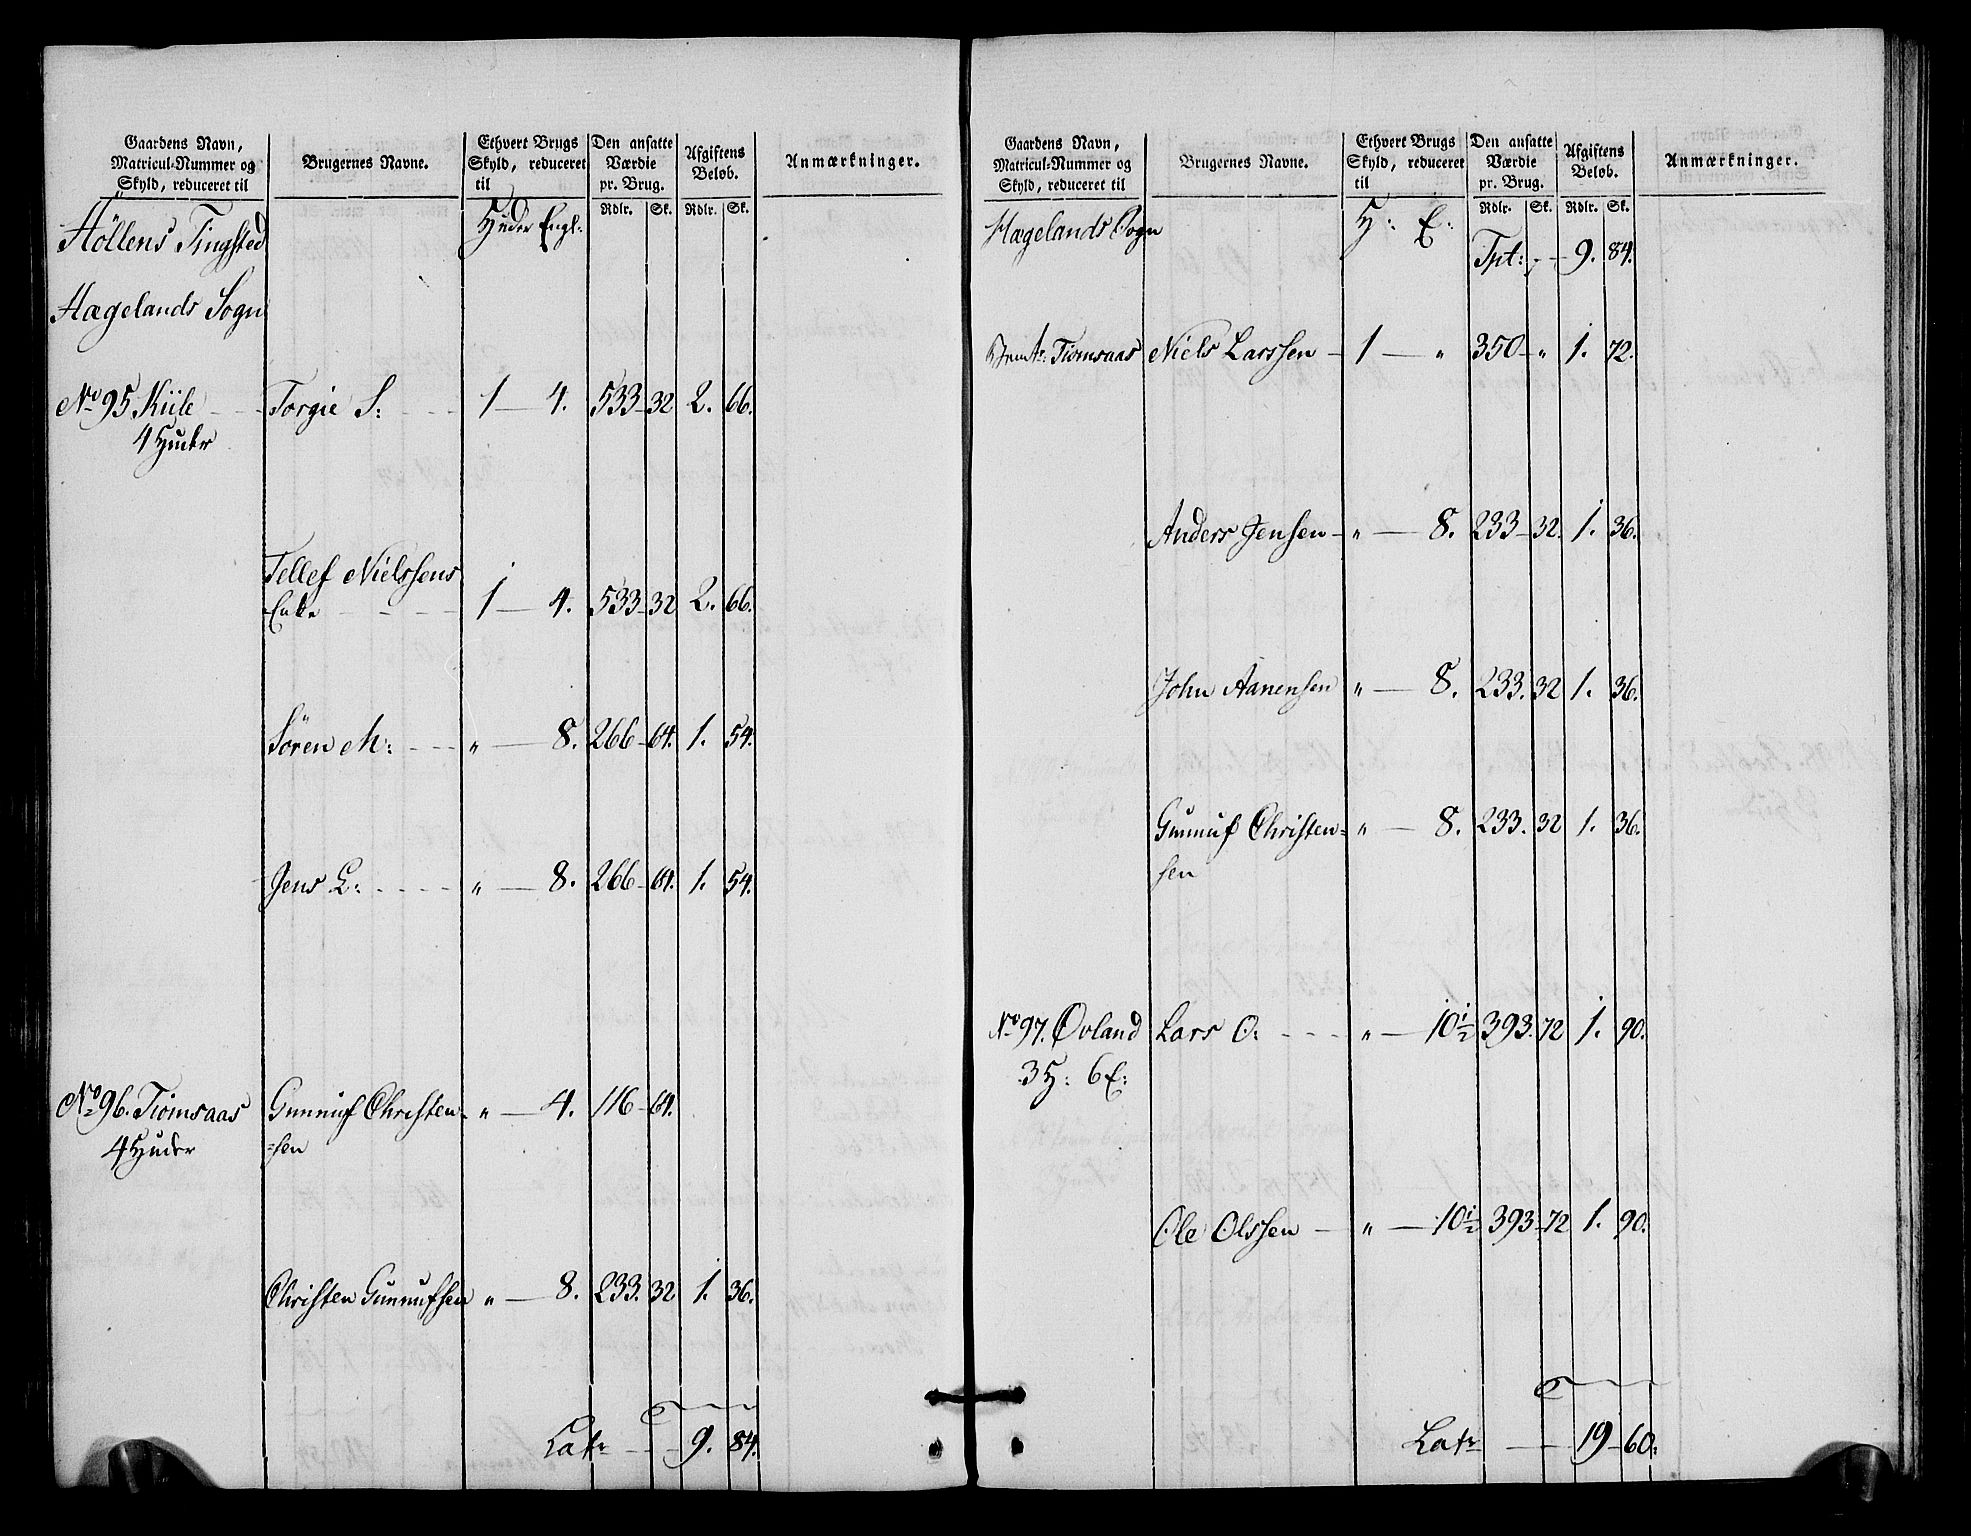 Gaardens Navn, Matricul-Nummer og Skyld, reduceret til | Brugernes Navne. | Ethvert Brugs Skyld, reduceret til | Den ansatte Værdie pr. Brug. | Afgiftens Beløb. | Anmærkninger.
Rdlr. Sk. Rdlr. Sk.
Höllens Tingsted Huder Engl:
Hægelands Sogn
No 95 Kiile Torgie S: 1 — 4. 533 - 32 2. 66.
4 Huder
Tellef Nielssens
Enke 1 — 4. 533 - 32 2. 66.
Sören M: " — 8. 266 - 64. 1. 54.
Jens L: " — 8. 266 - 64. 1. 54.
No 96. Tiomsaas Gunnuf Christen- " — 4. 116 - 64.
4 Huder =sen
Christen Gunnufsen " — 8. 233. 32 1. 36.
Latr 9. 84.
Gaardens Navn, Matricul-Nummer og Skyld, reduceret til | Brugernes Navne. | Ethvert Brugs Skyld, reduceret til | Den ansatte Værdie pr. Brug. | Afgiftens Beløb. | Anmærkninger.
Rdlr. Sk. Rdlr. Sk.
Hægelands Sogn H: E:
Tpt: 9. 84.
Tiomsaas Niels Larssen — 1 — " 350 - " 1. 72.
Anders Jensen — " — 8. 233 - 32. 1. 36.
John Aanensen " — 8. 233. 32 1. 36.
Gunnuf Christen= " — 8. 233. 32 1. 36.
sen
No 97. Øvland Lars O: " — 10½ 393. 72 1. 90.
3 H: 6 E:
Ole Olssen — " — 10½ 393 - 72 1. 90.
Latr — 19 - 60.